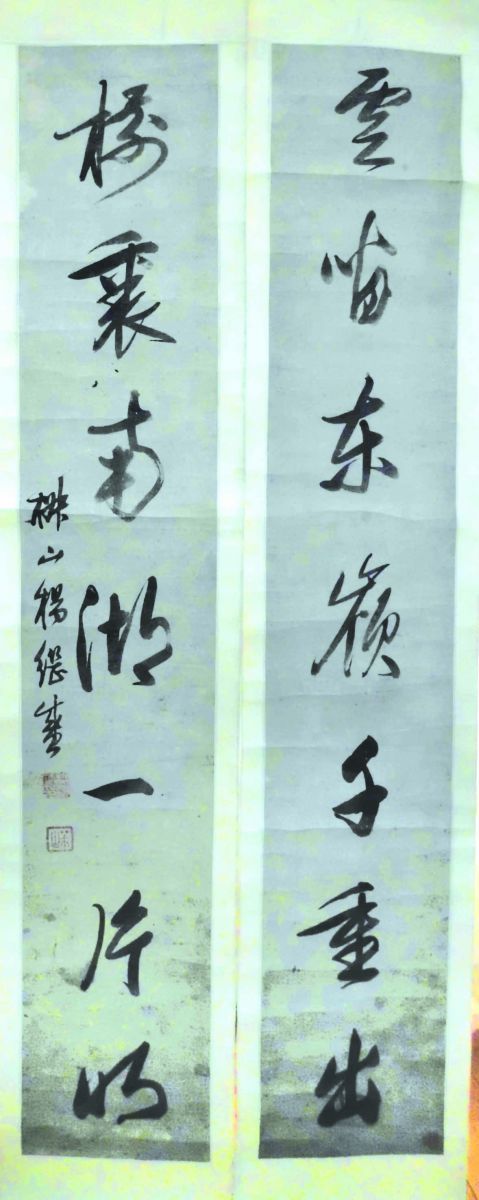 雲間東嶺千重出
樹裏南湖一片明
椒山楊繼盛